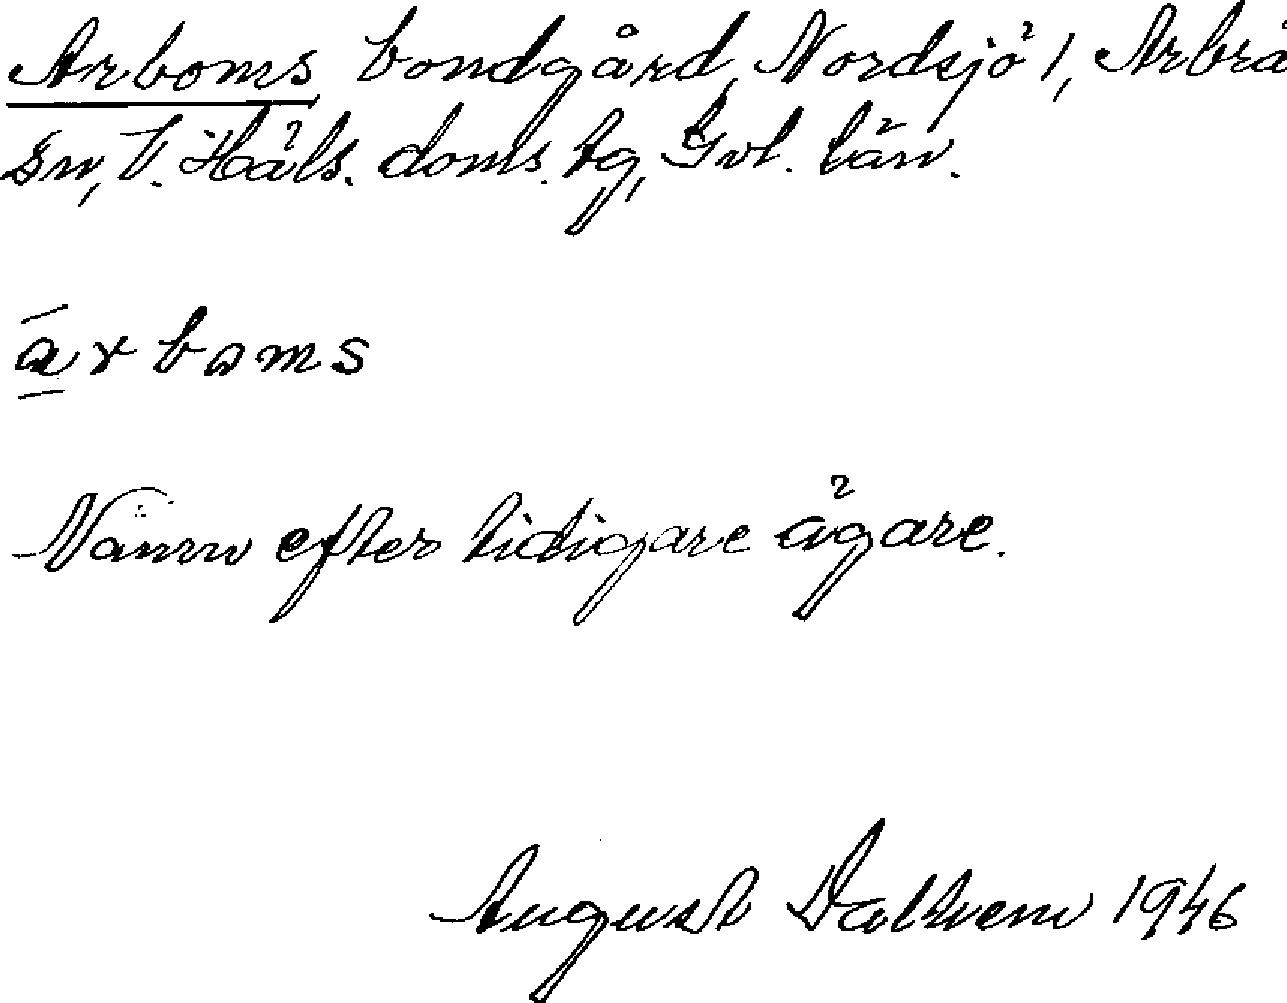 Arboms bondgård, Nordsjö 1, Arbrå
sn, V. Häls. doms. tg, Gvl. län.
a̱rboms
Nämn efter tidigare ägare.
August 1946